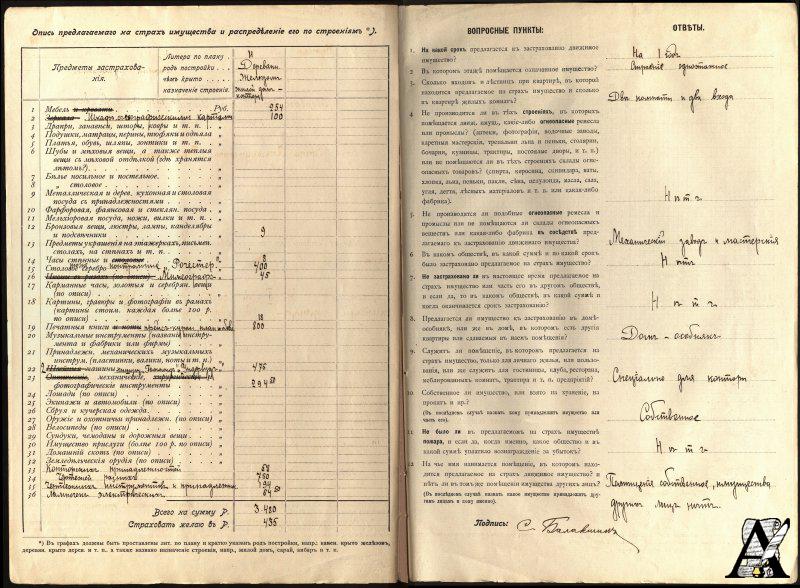 Опись предлагаемаго на страхъ имущества и распредѣленіе его по строеніямъ *).
Предметы застрахованія.
Литера по плану
родъ постройки
чѣмъ крыто
назначеніе строенія.
Н
Деревян.
Желѣзом
жилой домъ-
контора
1 Мебель и кровати Руб. 254
2 Зеркала Шкафъ съ картами 100
3 Драпри, занавѣси, шторы, ковры и т. п.
4 Подушки, матрацы, перины, тюфяки и одѣяла
5 Платья, обувь, шляпы, зонтики и т. п.
6 Шубы и мѣховыя вещи, а также теплыя
вещи съ мѣховой отдѣлкой (гдѣ хранятся
лѣтомъ?)
7 Бѣлье носильное и постельное.
8 „ столовое
9 Металлическая и дерев. кухонная и столовая
посуда съ принадлежностями
10 Фарфоровая, фаянсовая и стеклян. посуда
11 Мельхіоровая посуда, ножи, вилки и т. п.
12 Бронзовыя вещи, люстры, лампы, канделябры
и подсвѣчники 9
13 Предметы украшенія на этажеркахъ, письмен.
столахъ, на стѣнахъ и т. п.
14 Часы стѣнные и столовые 8
15 Столовое серебро контрольные Рочестер 400
16 Иконы въ ризахъ (по описи) Мимеограф 45
17 Карманные часы, золотыя и серебрян. вещи
(по описи)
18 Картины, гравюры и фотографіи въ рамахъ
(картины стоим. каждая болѣе 100 р.
по описи) 18
19 Печатныя книги и ноты прейс-куран. планы 800
20 Музыкальные инструменты (названіе инстру-
мента и фабрики или фирмы)
21 Принадлежн. механическихъ музыкальныхъ
инструм. (пластинки, валики, ноты и т. п.)
22 Швейныя машины 475
23 механическіе, хирургическіе
фотографическіе инструменты 294 50
24 Лошади (по описи)
25 Экипажи и автомобили (по описи)
26 Сбруя и кучерская одежда
27 Оружіе и охотничьи принадлежн. (по описи)
28 Велосипеды (по описи)
29 Сундуки, чемоданы и дорожныя вещи
30 Имущество прислуги (болѣе 100 р. по описи)
31 Домашній скотъ (по описи)
32 Земледѣльческія орудія (по описи)
33 Конторскія принадлежности
34 Чертежей разныхъ
35 Чертежныхъ инструментовъ и принадлежн. 194
36 электрическихъ 64 50
Всего на сумму Р. 3.400
Страховать желаю въ Р. 435
*) Въ графахъ должны быть проставлены лит. по плану и кратко указанъ родъ постройки, напр.: камен. крыто желѣзомъ,
деревян. крыто дерев. и т. п., а также названо назначеніе строенія, напр., жилой домъ, сарай, амбаръ и т. п.
ВОПРОСНЫЕ ПУНКТЫ:
ОТВѢТЫ.
1. На какой срокъ предлагается къ застрахованію движимое
имущество?
На 1 годъ
2. Въ которомъ этажѣ помѣщается означенное имущество?
Строеніе одноэтажное
3. Сколько входовъ и лѣстницъ при квартирѣ, въ которой
находится предлагаемое на страхъ имущество и сколько
въ квартирѣ жилыхъ комнатъ?
Двѣ комнаты и два входа
4. Не производится ли въ тѣхъ строеніяхъ, въ которыхъ
помѣщается движ. имущ., какіе-либо огнеопасные ремесла
или промыслы? (аптеки, фотографіи, водочные заводы,
каретныя мастерскія, трепальни льна и пеньки, столярни,
бочарни, кузницы, трактиры, постоялые дворы, и т. п.)
или не помѣщаются ли въ тѣхъ строеніяхъ склады огне-
опасныхъ товаровъ? (спирта, керосина, скипидара, ваты,
хлопка, льна, пеньки, пакли, сѣна, целулоида, масла, сала,
угля, дегтя, лѣсныхъ матеріаловъ и т. п. или какая-либо
фабрика).
Нѣтъ
5. Не производится ли подобные огнеопасные ремесла и
промыслы или не помѣщаются ли склады огнеопасныхъ
веществъ или какая-либо фабрика въ сосѣдствѣ пред-
лагаемаго къ застрахованію движимаго имущества?
Механическій заводъ и мастерскія
6. Въ какомъ обществѣ, въ какой суммѣ и по какой срокъ
было застраховано предлагаемое на страхъ имущество?
Нѣтъ
7. Не застраховано ли въ настоящее время предлагаемое на
страхъ имущество или часть его въ другомъ обществѣ,
и если да, то въ какомъ обществѣ, въ какой суммѣ и
когда оканчивается срокъ застрахованія?
Нѣтъ
8. Предлагается ли имущество къ застрахованію въ домѣ-
особнякѣ, или же въ домѣ, въ которомъ есть другія
квартиры или сдаваемыя въ наемъ помѣщенія?
Домъ-особнякъ
9. Служитъ ли помѣщеніе, въ которомъ предлагается на
страхъ имущество, только для личнаго жилья, или поль-
зованія, или же служитъ для гостиницы, клуба, ресторана,
меблированныхъ комнатъ, трактира и т. п. предпріятій?
Спеціально для конторы
10. Собственное ли имущество, или взято на храненіе, на
прокатъ и пр.?
(Въ послѣднемъ случаѣ назвать кому принадлежитъ имущество или
часть его).
Собственное
11. Не было ли въ предлагаемомъ на страхъ имуществѣ
пожара, и если да, когда именно, какое общество и въ
какой суммѣ уплатило вознагражденіе за убытокъ?
Нѣтъ
12. На чье имя нанимается помѣщеніе, въ которомъ нахо-
дится предлагаемое на страхъ движимое имущество? и
нѣтъ ли въ томъ-же помѣщеніи имущества другихъ лицъ?
(Въ послѣднемъ случаѣ назвать какое имущество принадлежитъ дру-
гимъ лицамъ и кому именно).
Помѣщеніе собственное, имущества
другихъ лицъ нѣтъ.
Подпись: С. Балакшинъ
А